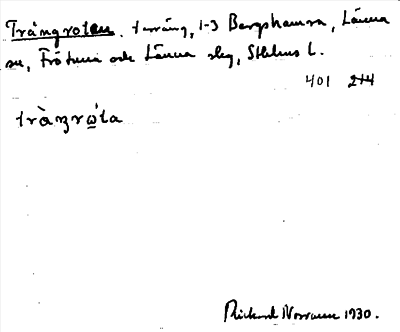 Trångroten. terräng, 1-3 Bergshamra, Länna
sn, Frötuna och Länna skg, Sthlms l.
401 214
tràŋrὼta
Rickard Norman 1930.